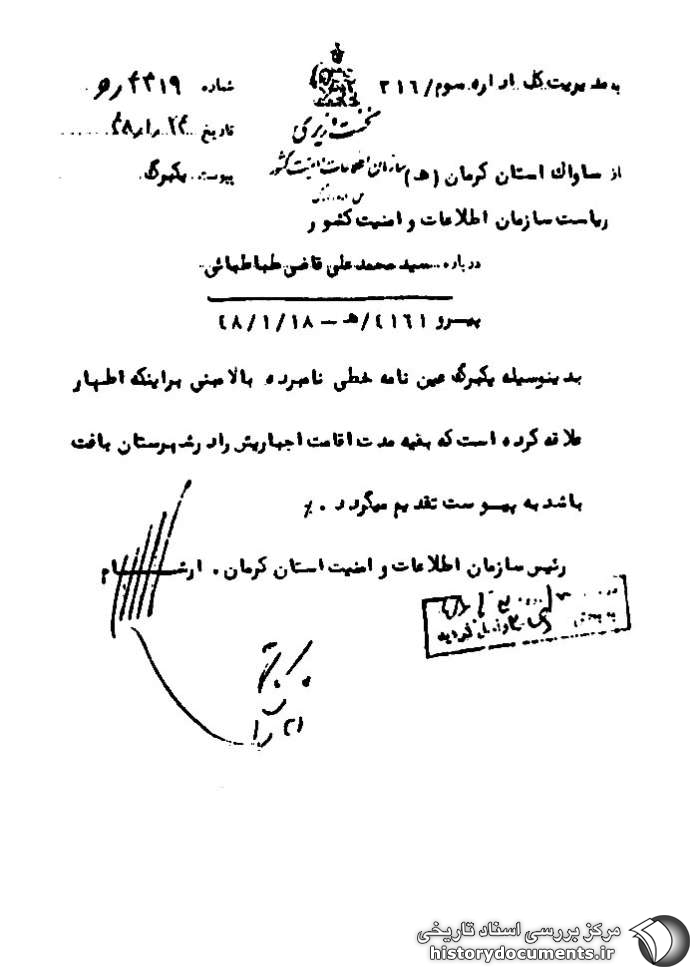 به مدیریت کل اداره سوم/ ۳۱۶
شماره ۴۳۱۹/ه
نخست وزیری
تاریخ ۲۴/۱/۴۸
سازمان اطلاعات و امنیت کشور
از ساواک استان کرمان (ه)
پیوست یکبرگ
ریاست سازمان اطلاعات و امنیت کشور
درباره سید محمد علی قاضی طباطبائی
پیرو ۴۱۶۱/ه – ۴۸/۱/۱۸
بدینوسیله یکبرگ عین نامه خطی نامبرده بالا مبنی براینکه اظهار
علاقه کرده است که بقیه مدت اقامت اجباریش را در شهرستان بافت
باشد به پیوست تقدیم میگردد. ٪
رئیس سازمان اطلاعات و امنیت استان کرمان. ارشام
مرکز بررسی اسناد تاریخی
historydocuments.ir